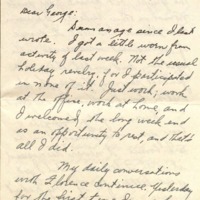 Dear George:
Seems an age since I last
wrote. I got a little worn from
activity of last week. Not the usual
holiday revelry, for I participated
in none of it. Just work; work
at the office, work at home, and
I welcomed the long week end
as an opportunity to rest, and that's
all I did.
My daily conversations
with Florence continue. Yesterday
for the first time I